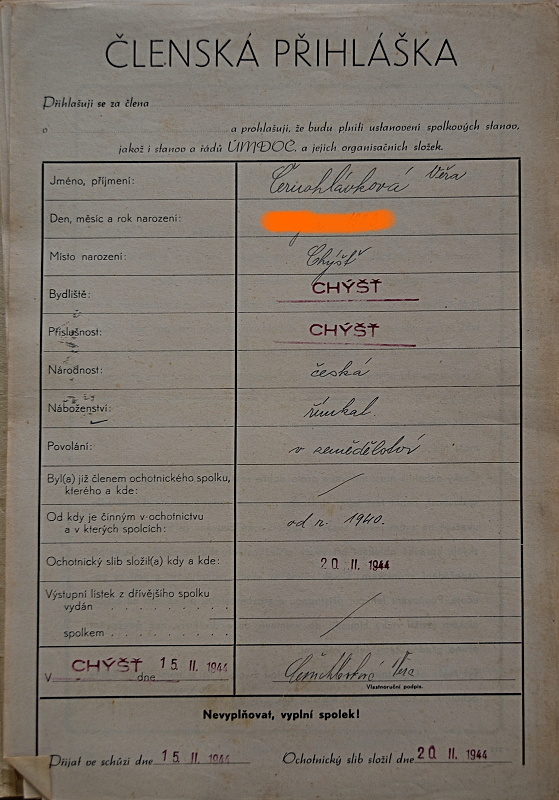 ČLENSKÁ PŘIHLÁŠKA
Přihlašuji se za člena
v a prohlašuji, že budu plniti ustanovení spolkových stanov,
jakož i stanov a řádů ÚMDOČ. a jejich organisačních složek.
Jméno, příjmení: Černohlávková Věra
Den, měsíc a rok narození:
Místo narození: Chýšť
Bydliště: CHÝŠŤ
Příslušnost: CHÝŠŤ
Národnost: česká
Náboženství: římkat.
Povolání: v zemědělství
Byl(a) již členem ochotnického spolku,
kterého a kde: /
Od kdy je činným v ochotnictvu
a v kterých spolcích: od r. 1940.
Ochotnický slib složil(a) kdy a kde: 20 II. 1944
Výstupní lístek z dřívějšího spolku
vydán . . . . . . . . . .
spolkem . . . . . . . . . /
V CHÝŠŤ dne 15 II. 1944 Černohlávková Věra
Vlastnoruční podpis.
Nevyplňovat, vyplní spolek!
Přijat ve schůzi dne 15 II. 1944 Ochotnický slib složil dne 20 II. 1944